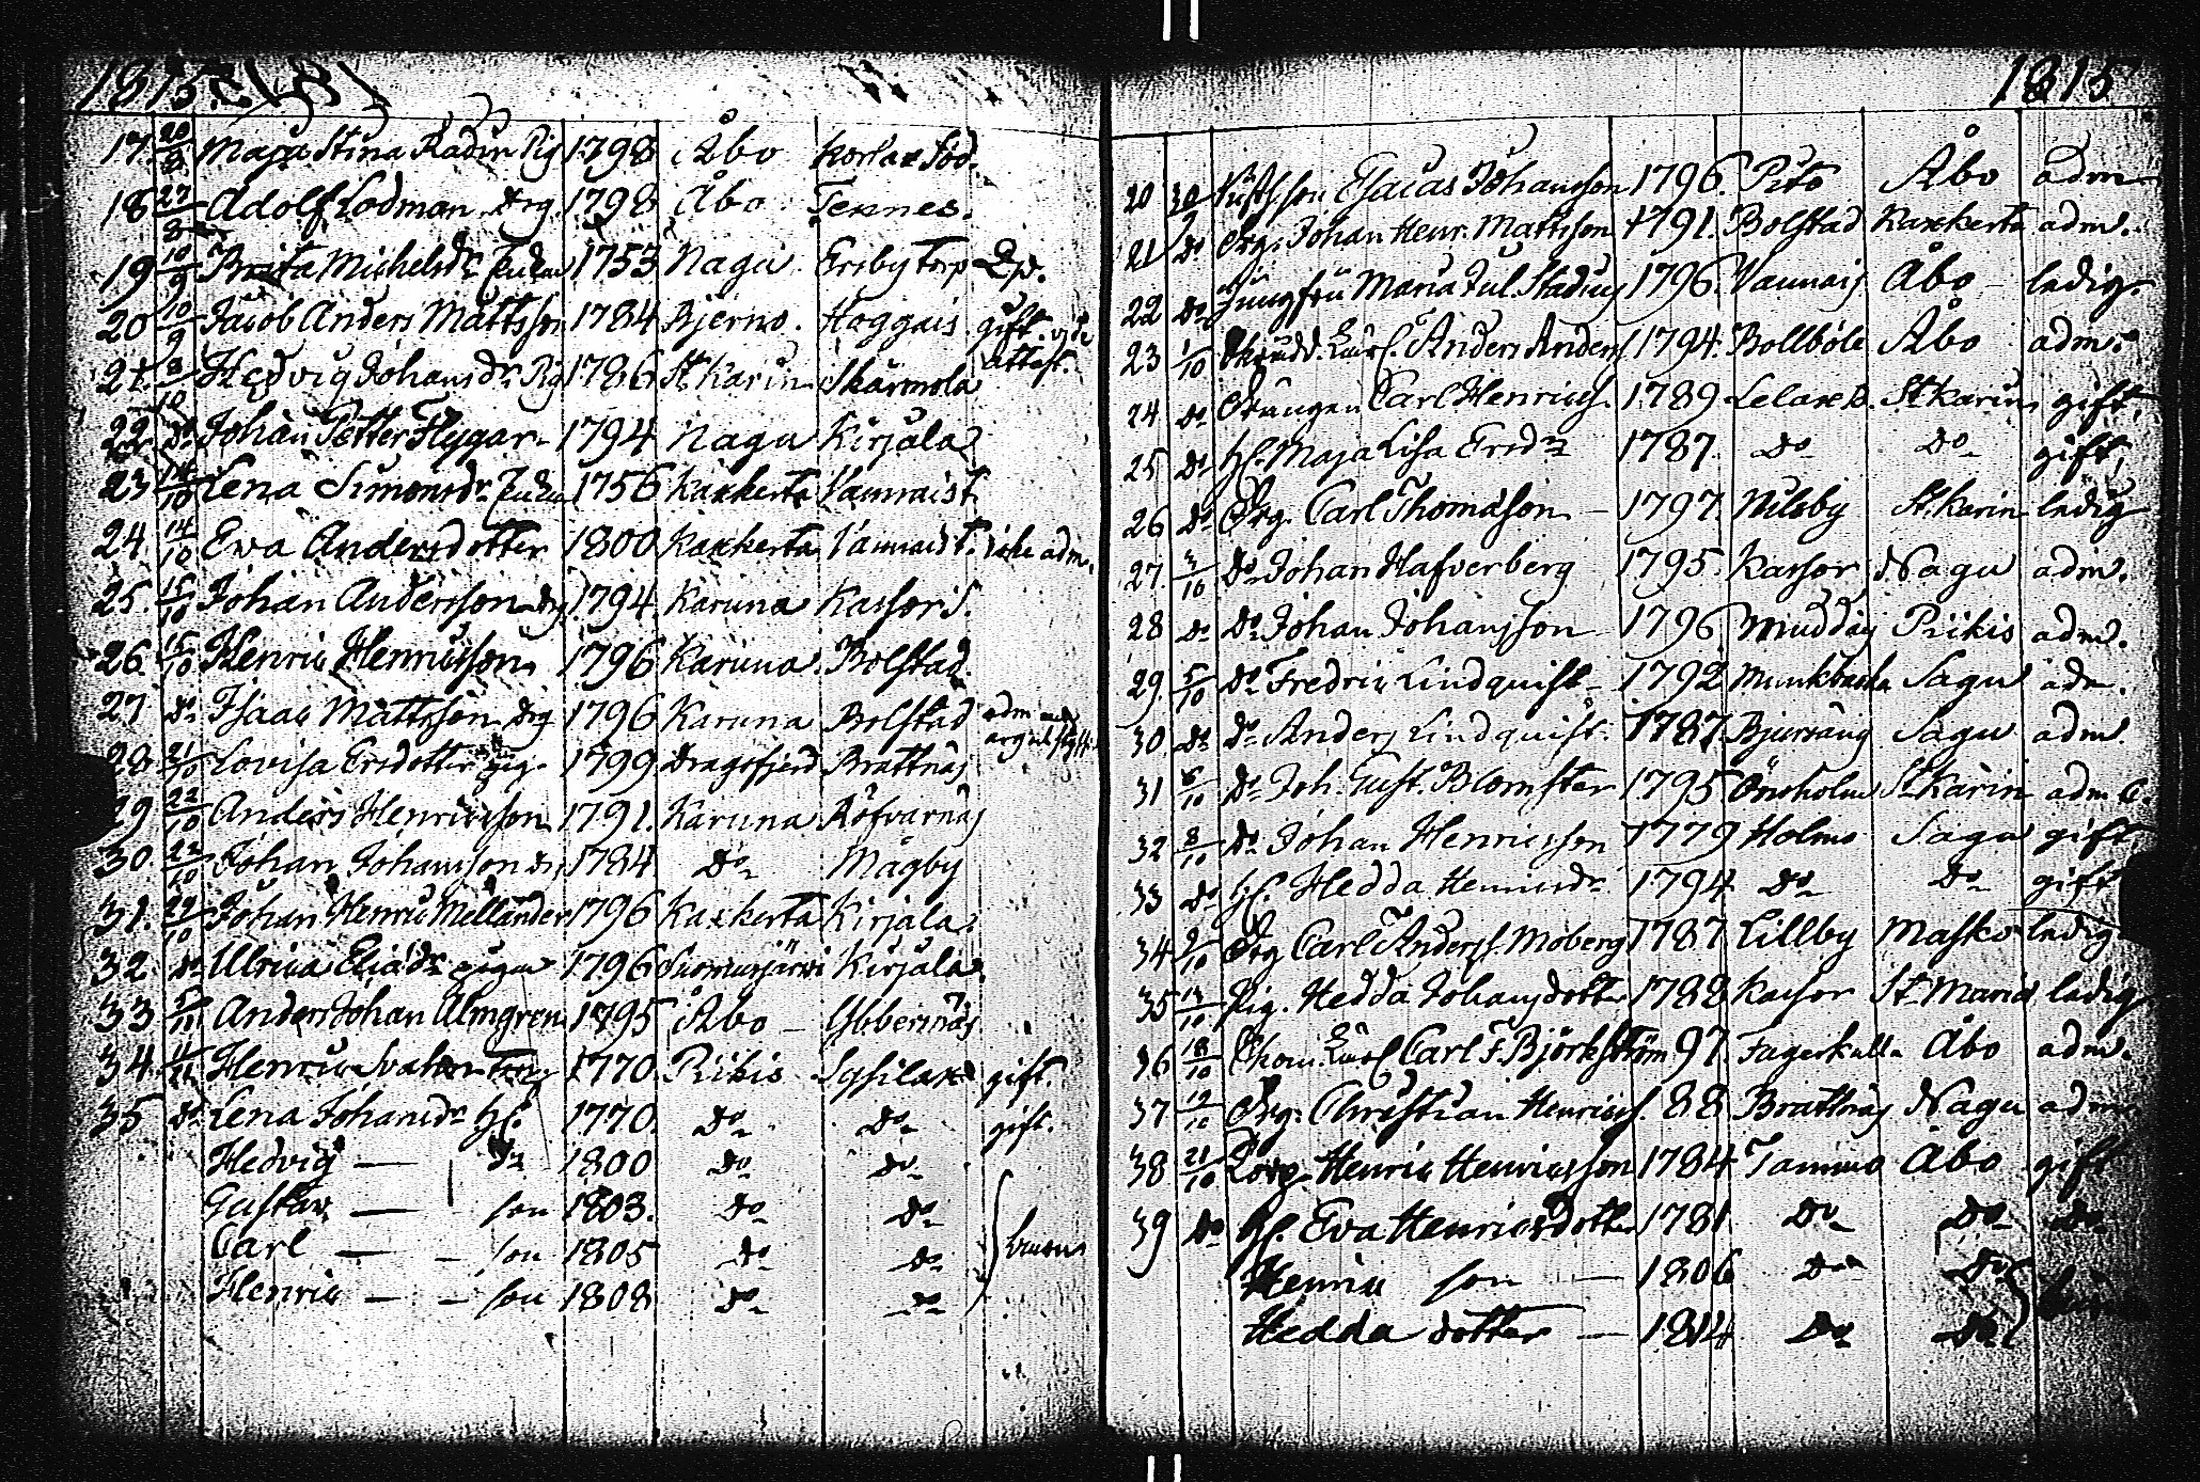 1815
17. 20/8 Maja Stina Radin Pig 1798 Åbo Korlax Söd.
18 27/8 Adolf Lodman Drg. 1798 Åbo Tennes.
19 10/9 Brita Michelsdr 1753 Nagu Ersby torp
20 10/9 Jacob Anders Mattsson 1784 Bjerno. Haggais. gift
attest.
21. 8/10 Hedvig Johansdr Pig 1786 St Karin Skärmola
22 do Johan Petter Flygar 1794 Nagu Kirjala
23 14/10 Lena Simonsdr 1756 Kakkerta Vannaist.
24. 14/10 Eva Andersdotter 1800 Kakkerta Vannaist. icke adm.
25. 15/10 Johan Andersson Drg 1794 Karuna Kassor S.
26. 15/10 Henric Henricsson 1796 Karuna Bolstad
27 do Isaac Mattsson Drg 1796 Karuna Bolstad adm
28 21/10 Lovisa Ersdotter pig. 1799 Dragsfjerd Brattnäs
29 22/10 Anders Henricsson 1791. Karuna Röfvarnäs
30. 22/10 Johan Johansson Drg 1784 do Mågby
31. 29/10 Johan Henric Mellander 1796 Kakkerta Kirjala
32 do Ulrica Eliædr pigan 1796 Suomusjärvi Kirjala
33 5/11 Anders Johan Almgren 1795 Åbo Ybbersnäs
34. 11/11 Henric 1770. Pikis Sysilax gift.
35 do Lena Johansdr H. 1770. do do gift.
Hedvig — dr 1800 do do
Gustav — son 1803. do do
Carl — son 1805 do do
Henric — son 1808 do do
1815
20 30/9 Esaias Johansson 1796. Pito Åbo adm
21 do Drg. Johan Henr. Mattsson 1791. Bolstad Kakkerta adm.
22 do Jungfru Maria Jul. Stadius 1796. Vannais Åbo ledig.
23 1/10 Skrädd. Lärl. Anders Anders 1794. Bollböle Åbo adm.
24 do Drängen Carl Henricss. 1789 Lelax St Karin gift.
25 do H. Maja Lisa Ersdr 1787 do do gift
26 do Drg. Carl Thomasson 1797 Nilsby St Karin ledig
27 3/10 do Johan Hafverberg 1795. Kassor Nagu adm.
28 do do Johan Johansson 1796 Muddais Piikis adm.
29 5/10 do Fredric Lindquist 1792 Munkbacka Sagu adm.
30 do do Anders Lindquist. 1787. Bjursäng Sagu adm.
31 6/10 do Joh. Gust. Blomster 1795 Önsholm St Karin adm
32 8/10 do Johan Henricsson 1779 Holms Sagu gift
33 do H. Hedda Henricsdr 1794 do do gift
34 9/10 Drg Carl Anderss. Moberg 1787 Lillby Masko ledig
35 13/10 Pig. Hedda Johansdotter 1788 Kassor St Maria ledig
36 18/10 Lärl Carl F. Björkström 97. Fagerkulla Åbo adm.
37 19/10 Drg. Christian Henricss. 88 Brattnäs Nagu adm
38 21/10 Torp. Henric Henricsson 1784 Tammo Åbo gift
39 do H. Eva Henricsdotter 1781 do do do
Henric son — 1806 do do
Hedda dotter — 1814 do do